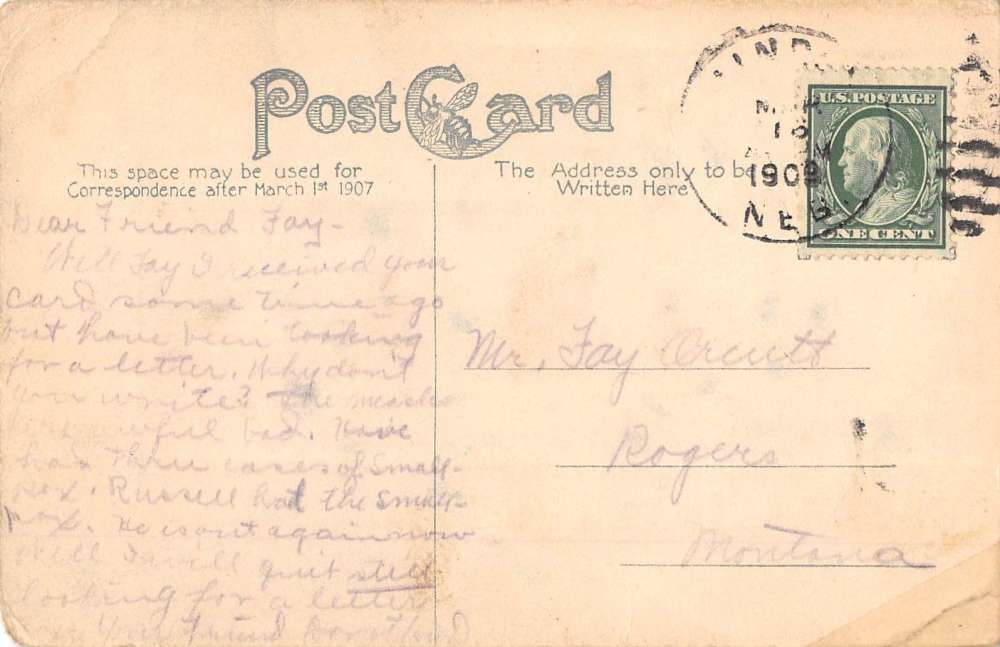 Post Card
This space may be used for
Correspondence after March 1st 1907
The Address only to be
Written Here
MAR
1909
NEB
U.S. POSTAGE
ONE CENT
Dear Friend Fay-
Well Fay I received your
card some time ago
but have been looking
for a letter. Why don't
you write? The measles
awful bad. Have
had three cases of small-
pox. Russell had the small-
pox. He is out again now
Well I will quit still
looking for a letter
Your friend
Mr. Fay Orcutt
Rogers
Montana